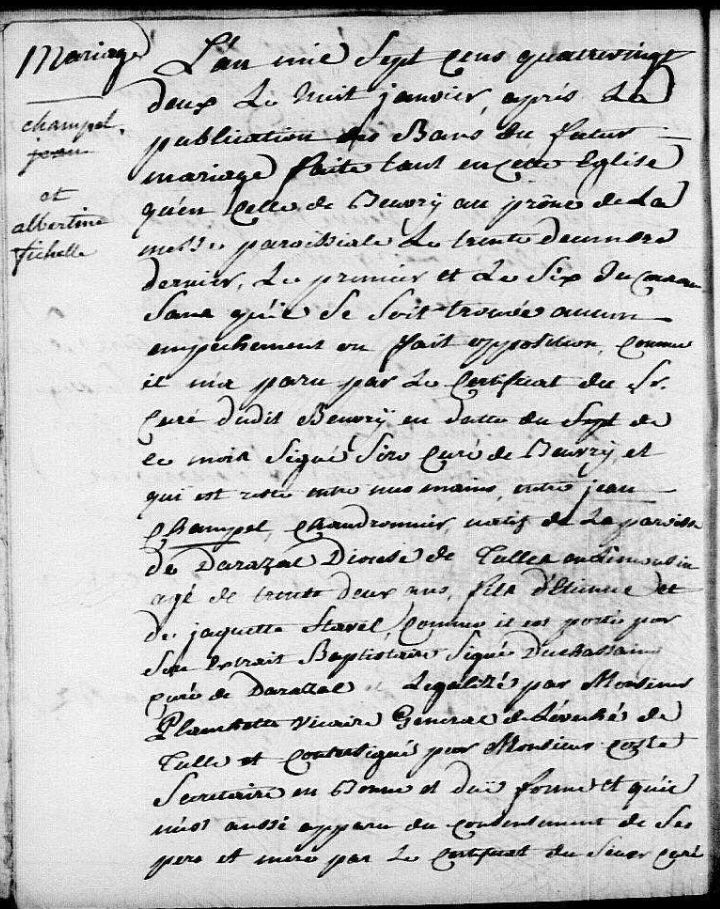 Mariage
champel
jean
et
albertine
fichelle
L'an mil Sept Cens quatrevingt
deux Le huit janvier, après La
publication des Bans du futur
mariage faite tant en cette Eglise
qu'en Celle de Beuvry au prône de La
messe paroissiale Le trente decembre
dernier, Le premier et Le Six du Couran
Sans qu'il Se Soit trouvée aucun
empechement ou fait opposition, Comme
il m'a paru par Le Certificat du Sr.
Curé dudit Beuvrÿ en datte du Sept de
ce mois Signé Siro Curé de Beuvry, et
qui est resté entre nos mains, entre jean
Champel, Chaudronnier, natif de La paroisse
de Darazal Diocese de Tulles en Limousin
agé de trente deux ans, fils d'Etienne et
de jaquette Stavel, Comme il est porté par
Son Extrait Baptistaire Signé Duchassain
Curé de Darazal et Legalizé par Monsieur
Planchette Vicaire General de L'evêché de
Tulle et Contresigné par Monsieur Coste
Secretaire en Bonne et duë forme et qu'il
m'est aussi apparu du Consentement de Ses
pere et mere par Le Certificat du Sieur Curé